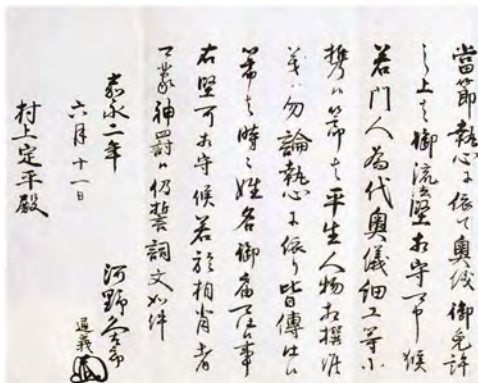 當節執心ニ依て奥儀御免許
之上者御流法堅相守可申候
若門人為代奥儀細工等
携候節者平生人物相撰
義ハ勿論執心ニ依り皆傳仕候
節者時々姓名御届可仕事
右堅可相守候若於相背者
可蒙神罰候仍誓詞文如件
嘉永二年
六月十一日
河野
通義
村上定平殿